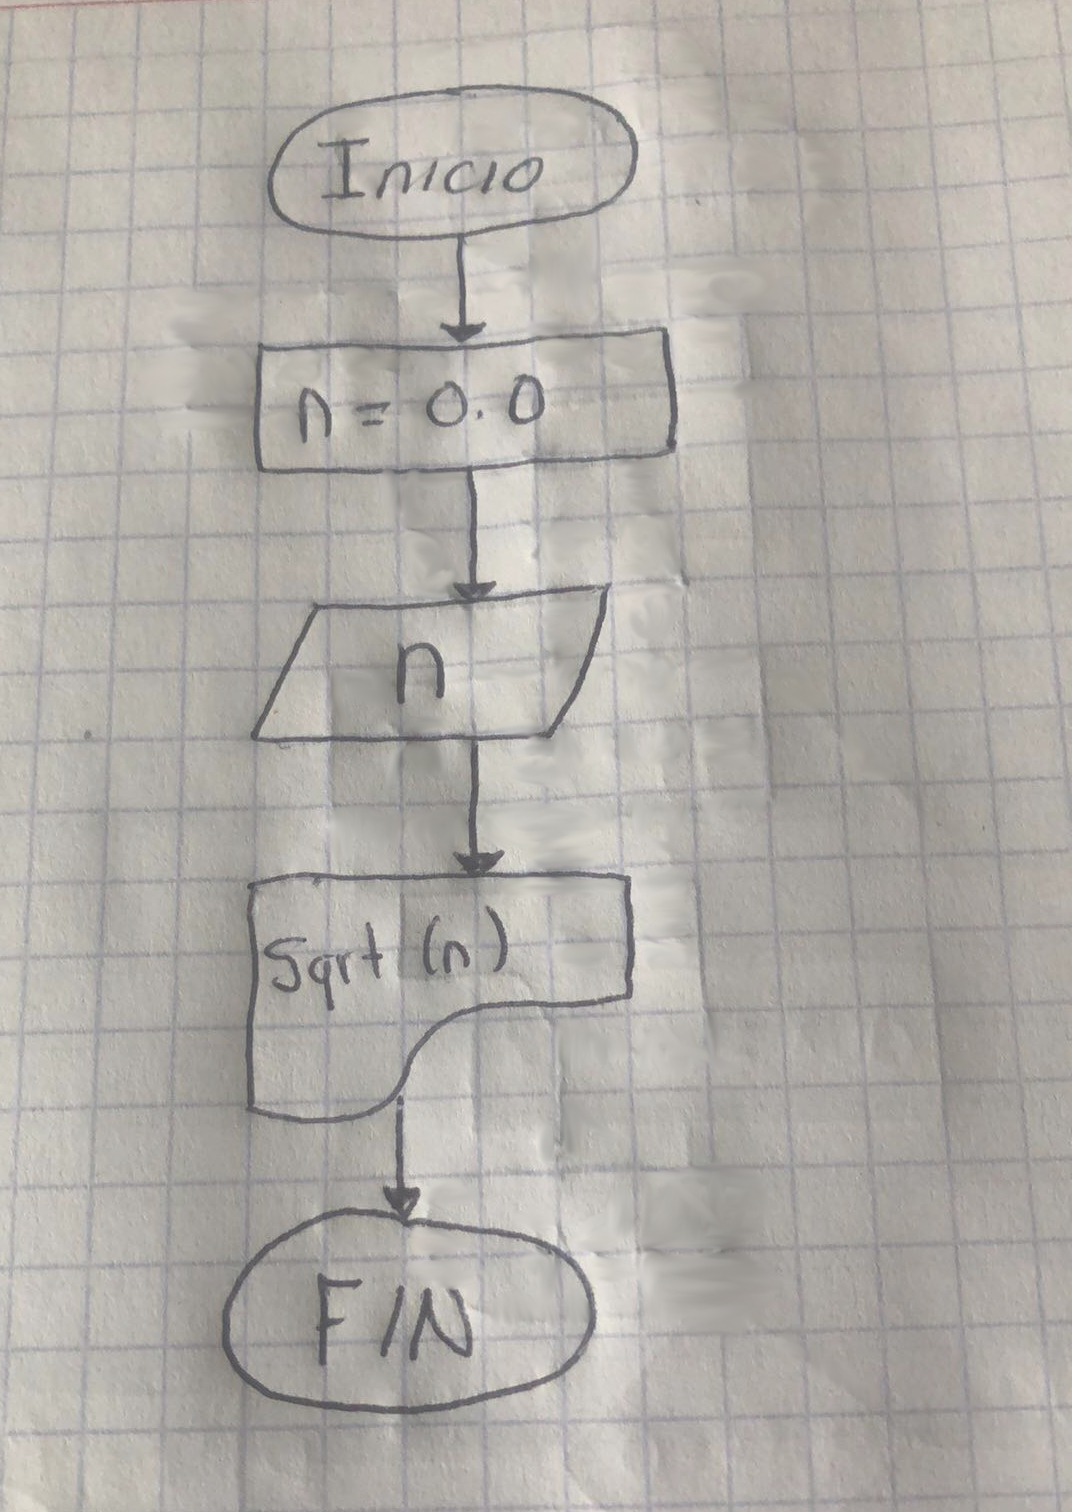 Inicio
n = 0.0
n
Sqrt (n)
FIN